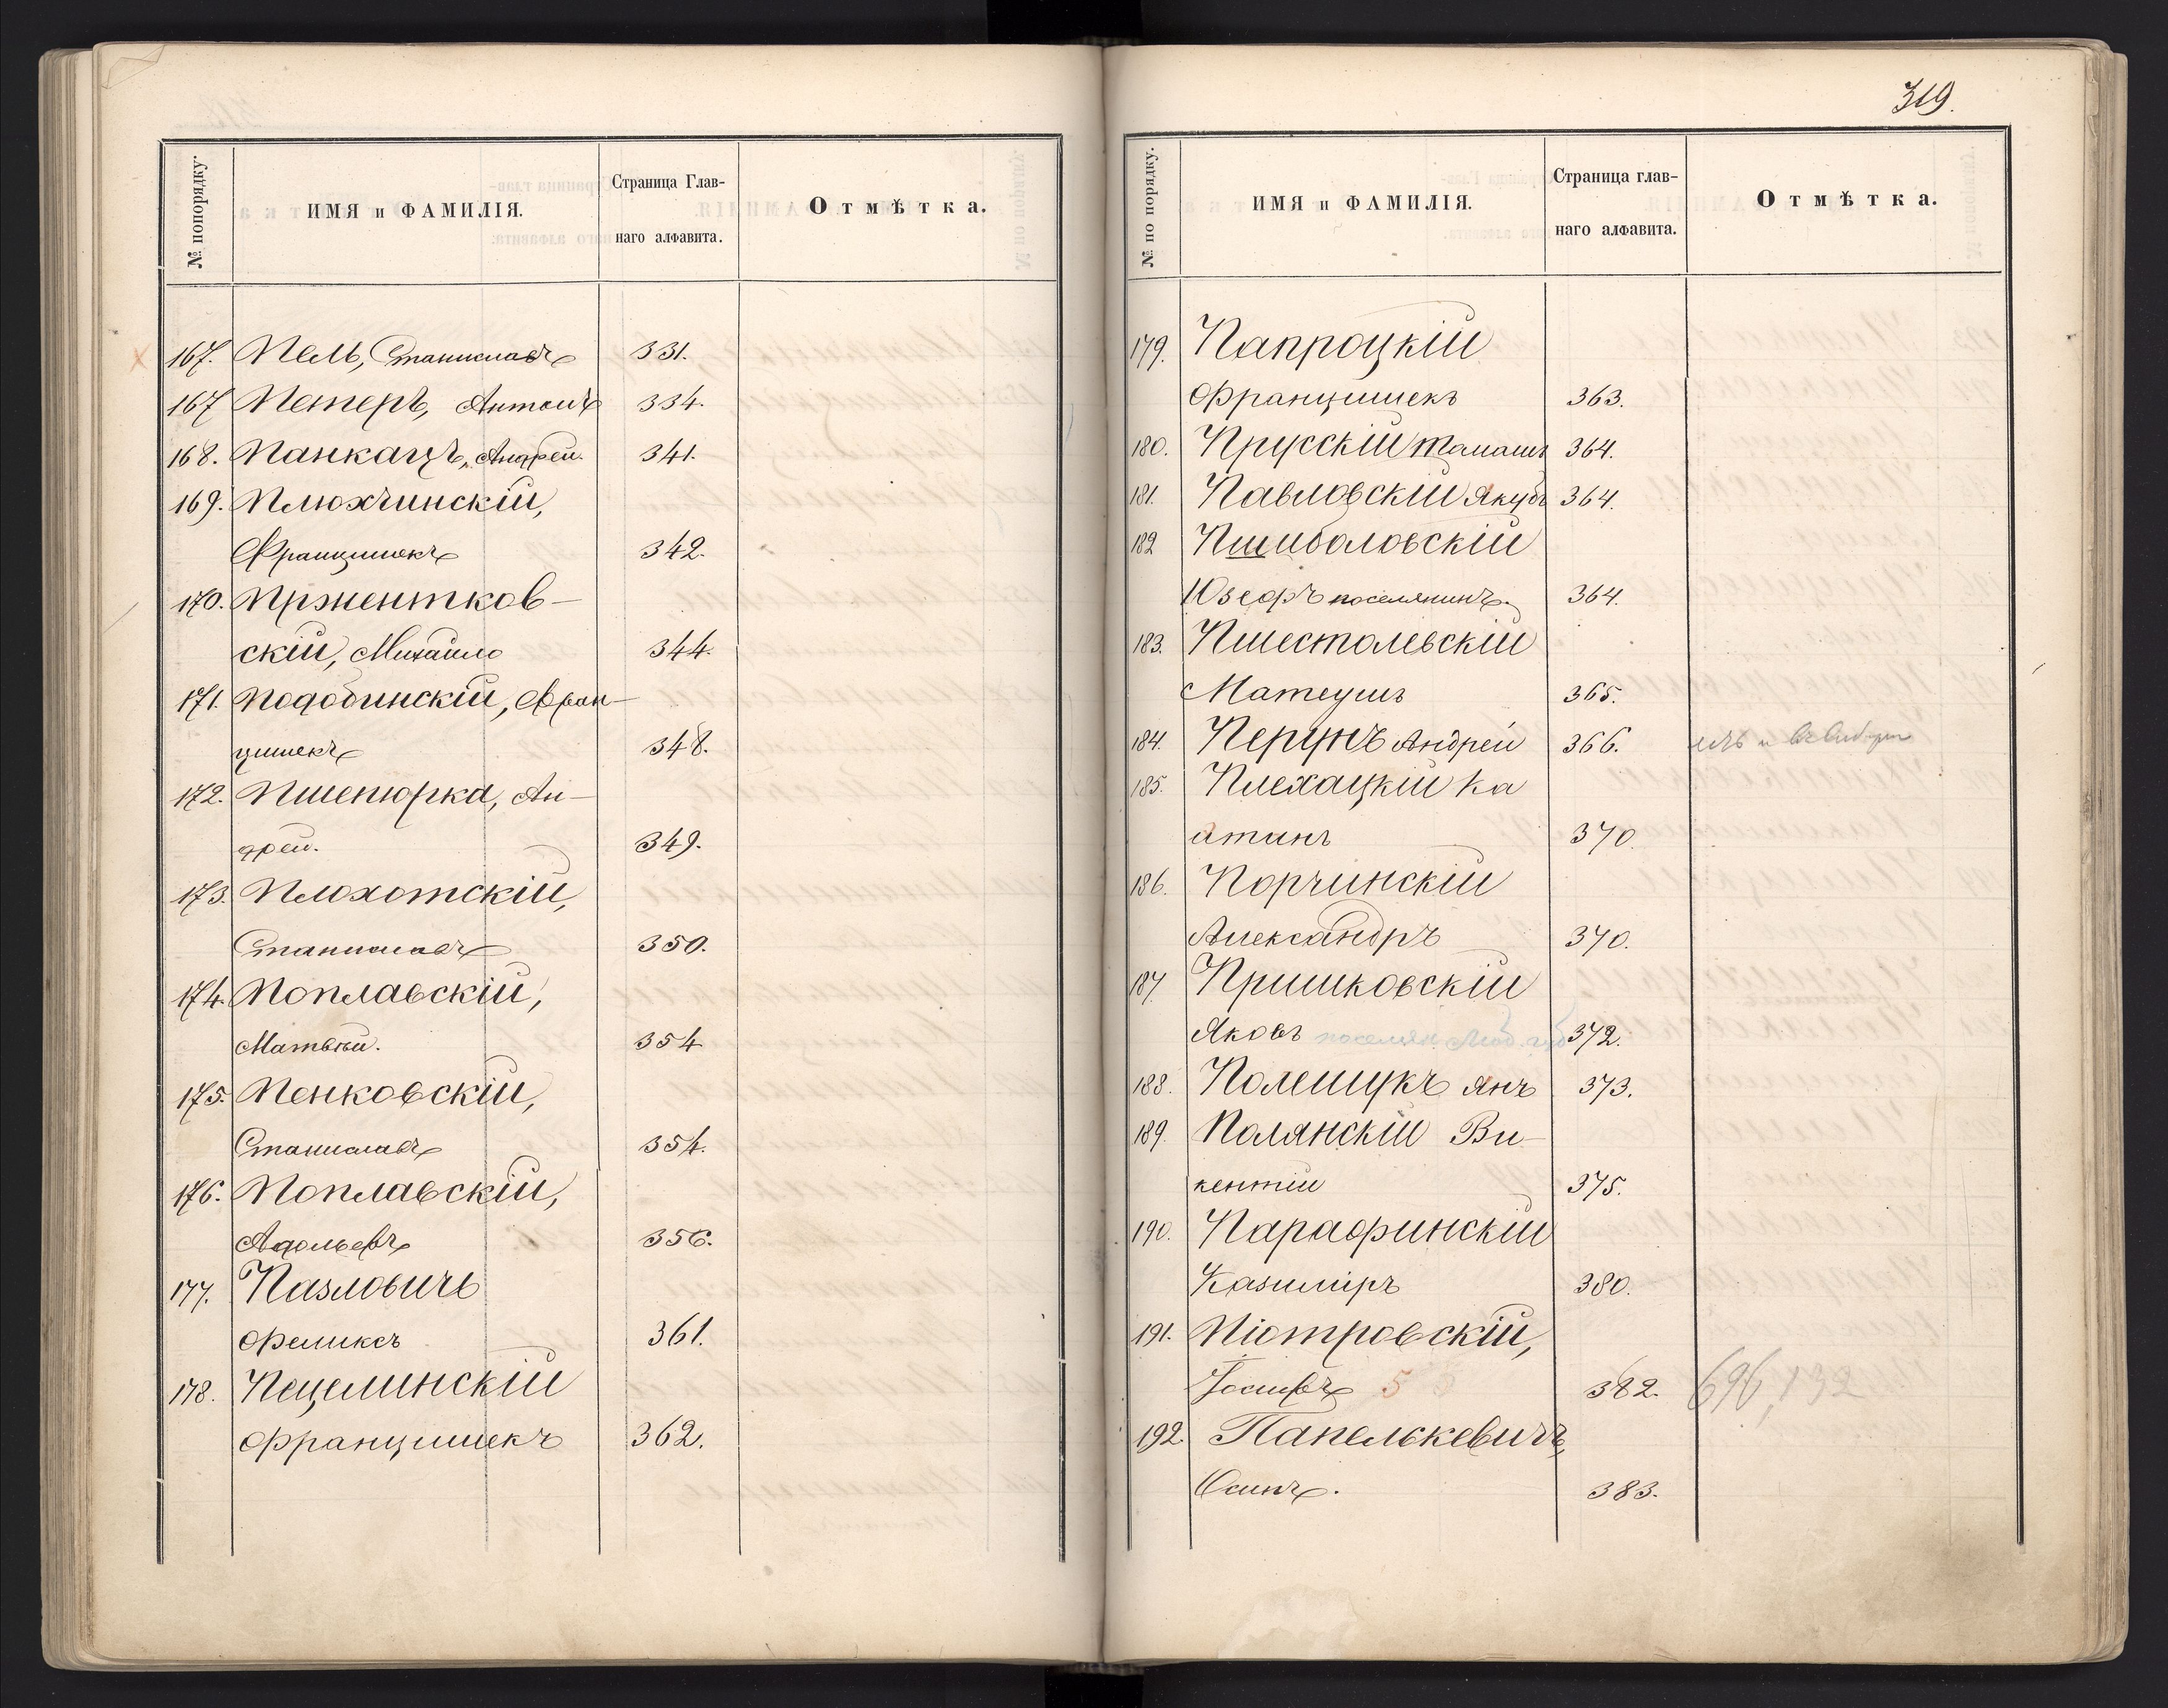 № попорядку.
ИМЯ и ФАМИЛІЯ.
Страница Глав-
наго алфавита.
Отмѣтка.
167. Пель, Станиславъ 331.
167 Петеръ, Антонъ 334.
168. Панкацъ, Андрей. 341.
169. Плюхчинскій,
Францишекъ 342.
170. Пржентков-
скій, Михайло 344.
171. Подобинскій, Фран-
цишекъ 348.
172. Пшепюрка, Ан-
дрей. 349.
173. Плохотскій,
Станиславъ 350.
174. Поплавскій,
Матвѣй. 354
175. Пенковскій,
Станиславъ 354.
176. Поплавскій,
Адольфъ 356.
177. Пазловичъ
Феликсъ 361.
178. Пецелинскій
Францишекъ 362.
319.
№ по порядку.
ИМЯ и ФАМИЛІЯ.
Страница глав-
наго алфавита.
Отмѣтка.
179. Папроцкій
Францишекъ 363.
180. Прусскій Томашъ 364.
181. Павловскій Якубъ 364.
182 Пшиболовскій
Юзефъ поселянинъ. 364.
183. Пшестолевскій
Матеушъ 365.
184. Перунъ Андрей 366.
185. Плехацкій Ка
атанъ 370.
186. Порчинскій
Александръ 370.
187. Пришковскій
Яковъ поселян. Люб. губ 372.
188. Полещукъ Янъ 373.
189. Полянскій Ви-
кентій 375.
190. Парафинскій
Казиміръ 380.
191. Піотровскій,
Іосифъ 5 382. 696,132
192. Папелькевичъ,
Осипъ. 383.